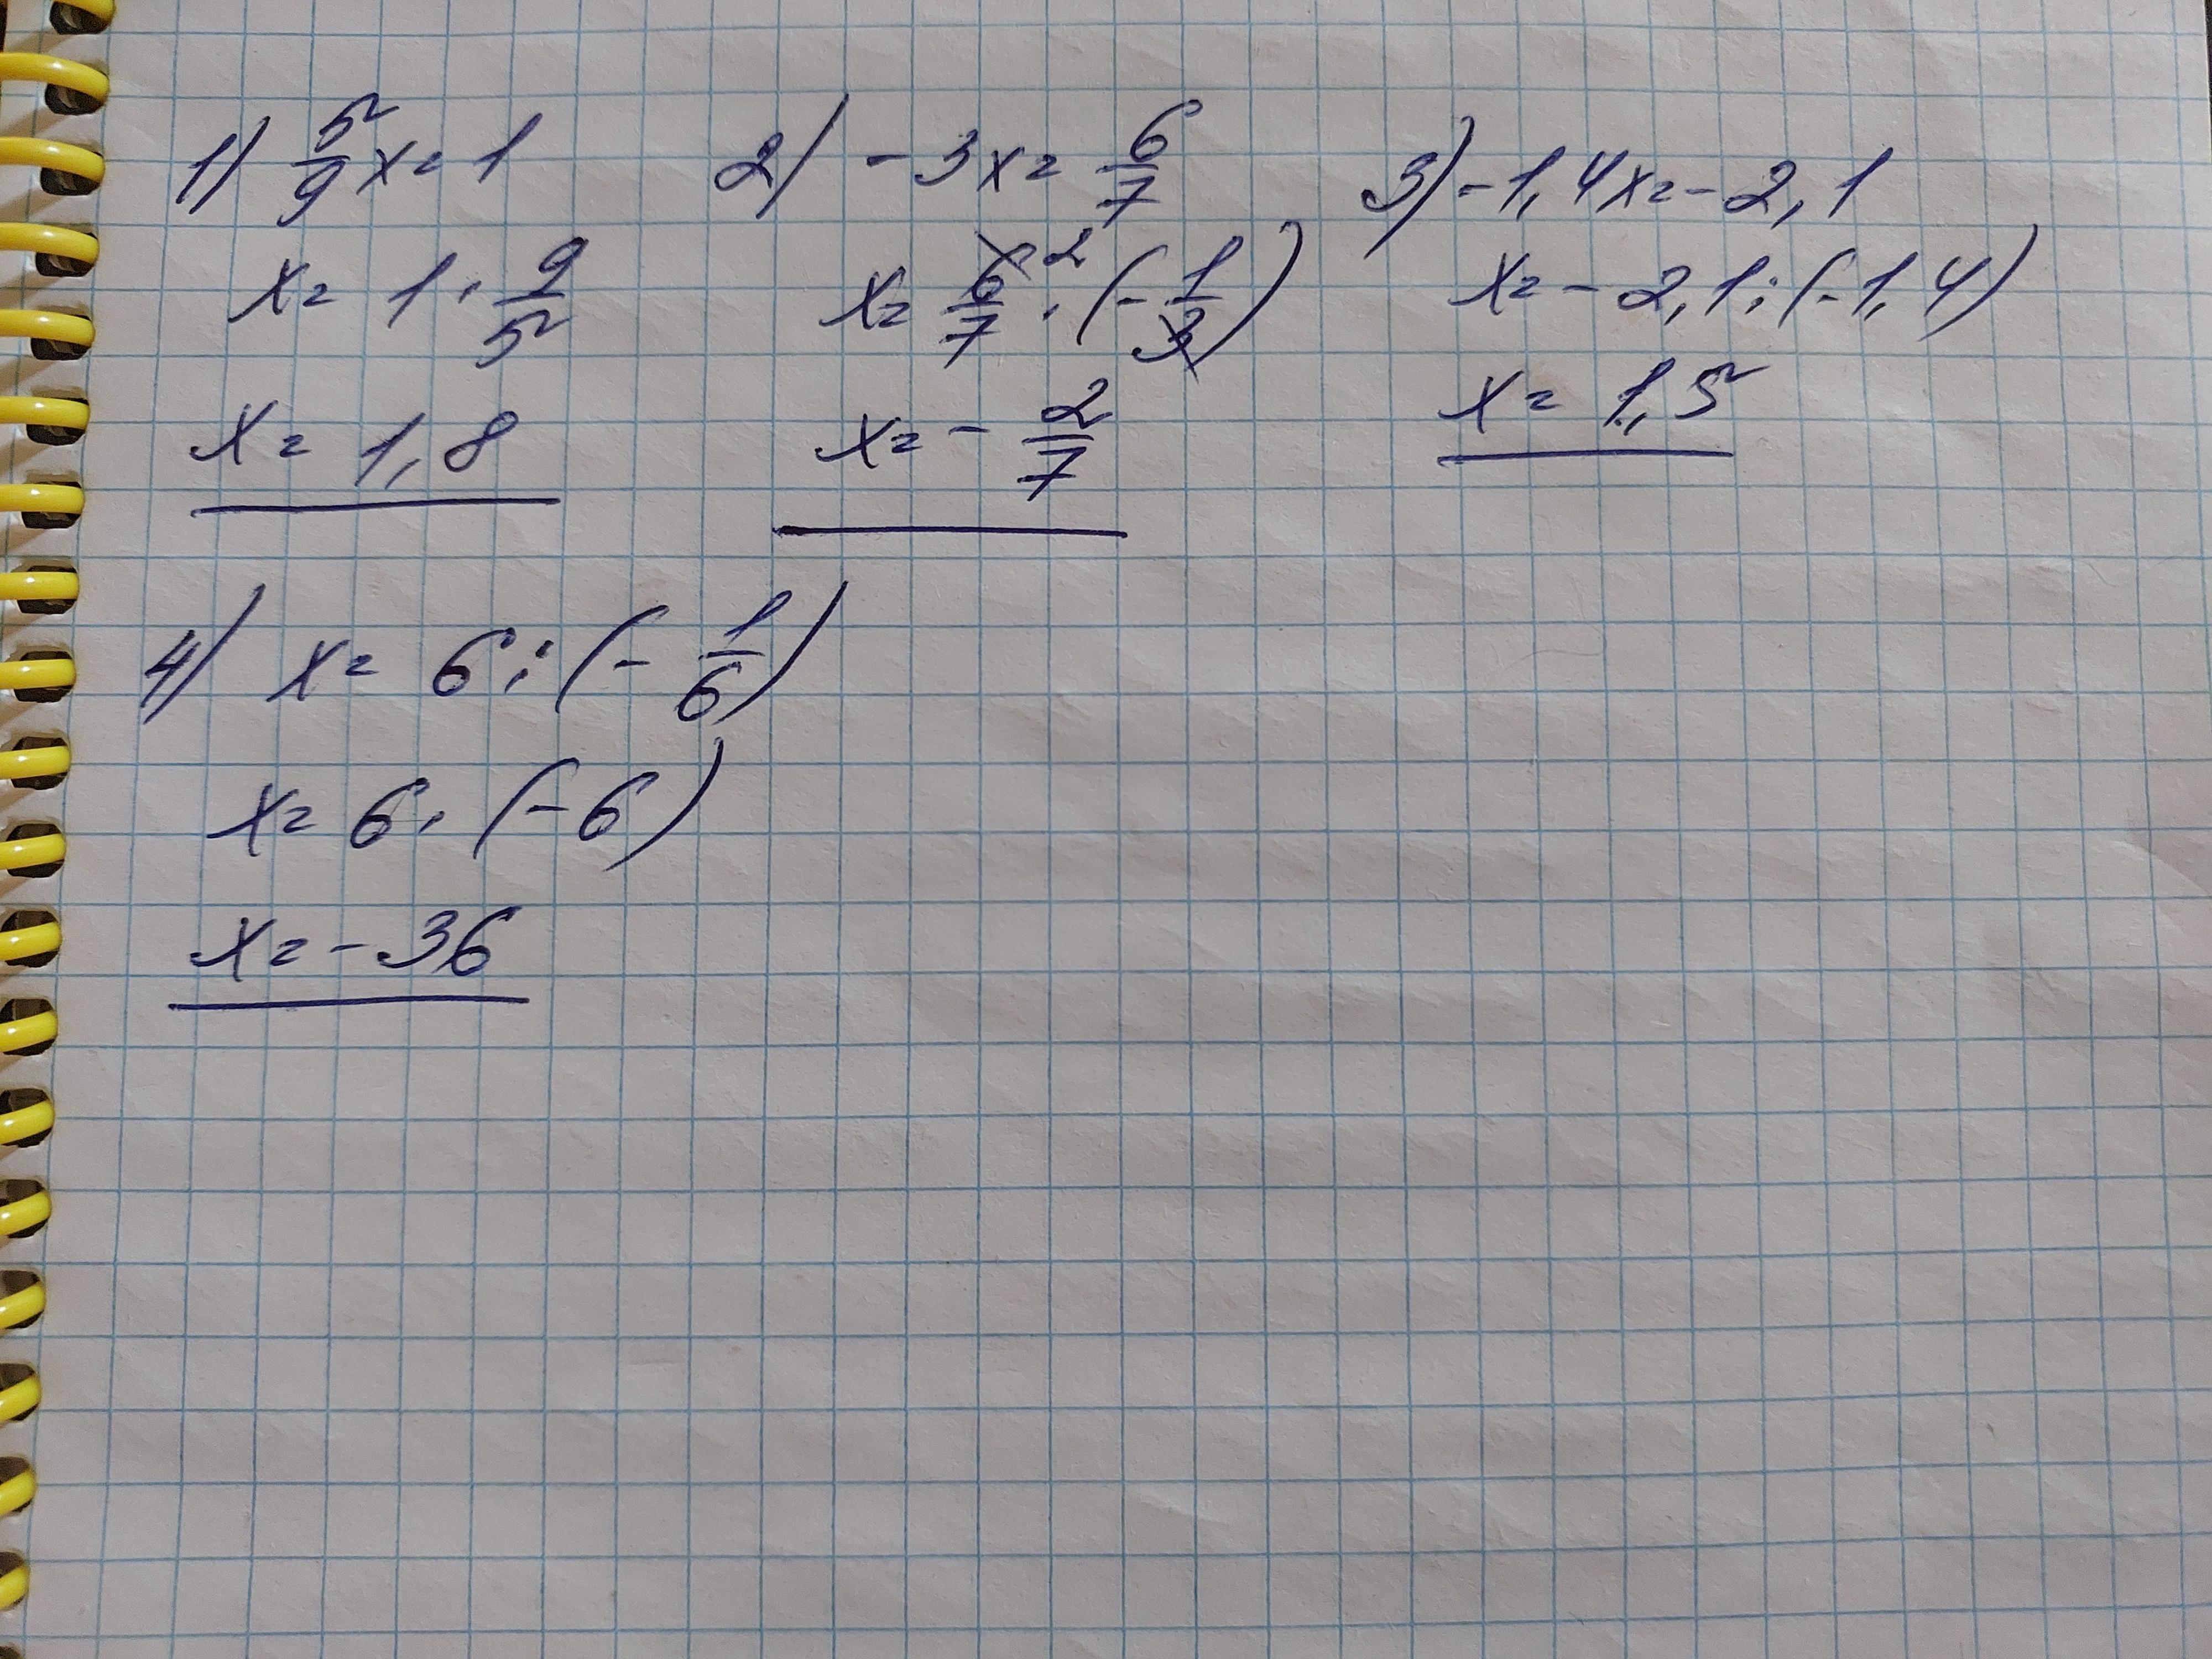 1) 5/9 x = 1
x = 1 · 9/5
x = 1,8
2) -3x = 6/7
x = 6/7 2 · (- 1/3)
x = - 2/7
3) -1,4x = -2,1
x = -2,1 : (-1,4)
x = 1,5
4) x = 6 : (- 1/6)
x = 6 · (-6)
x = -36